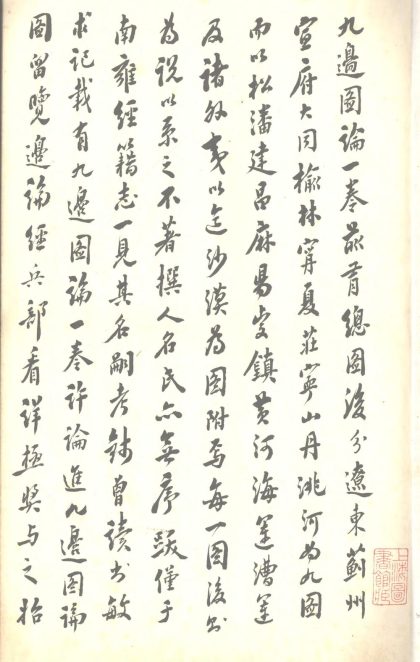 九邊圖論一卷前總圖後分遼東薊州
宣府大同榆林甯夏莊寧山丹洮河為九圖
而以松潘建昌麻易鎮黄河海運漕運
及諸外夷以迄沙漠為圖附焉每一圖後
為説以系之不著撰人名氏亦無序跋僅于
南雍經籍志一見其名嗣考錢曾讀書敏
求記載有九邊圖論一卷許論進九邊圖論
圖留覽邊論經兵部看詳極奬與之
上海圖
書館藏